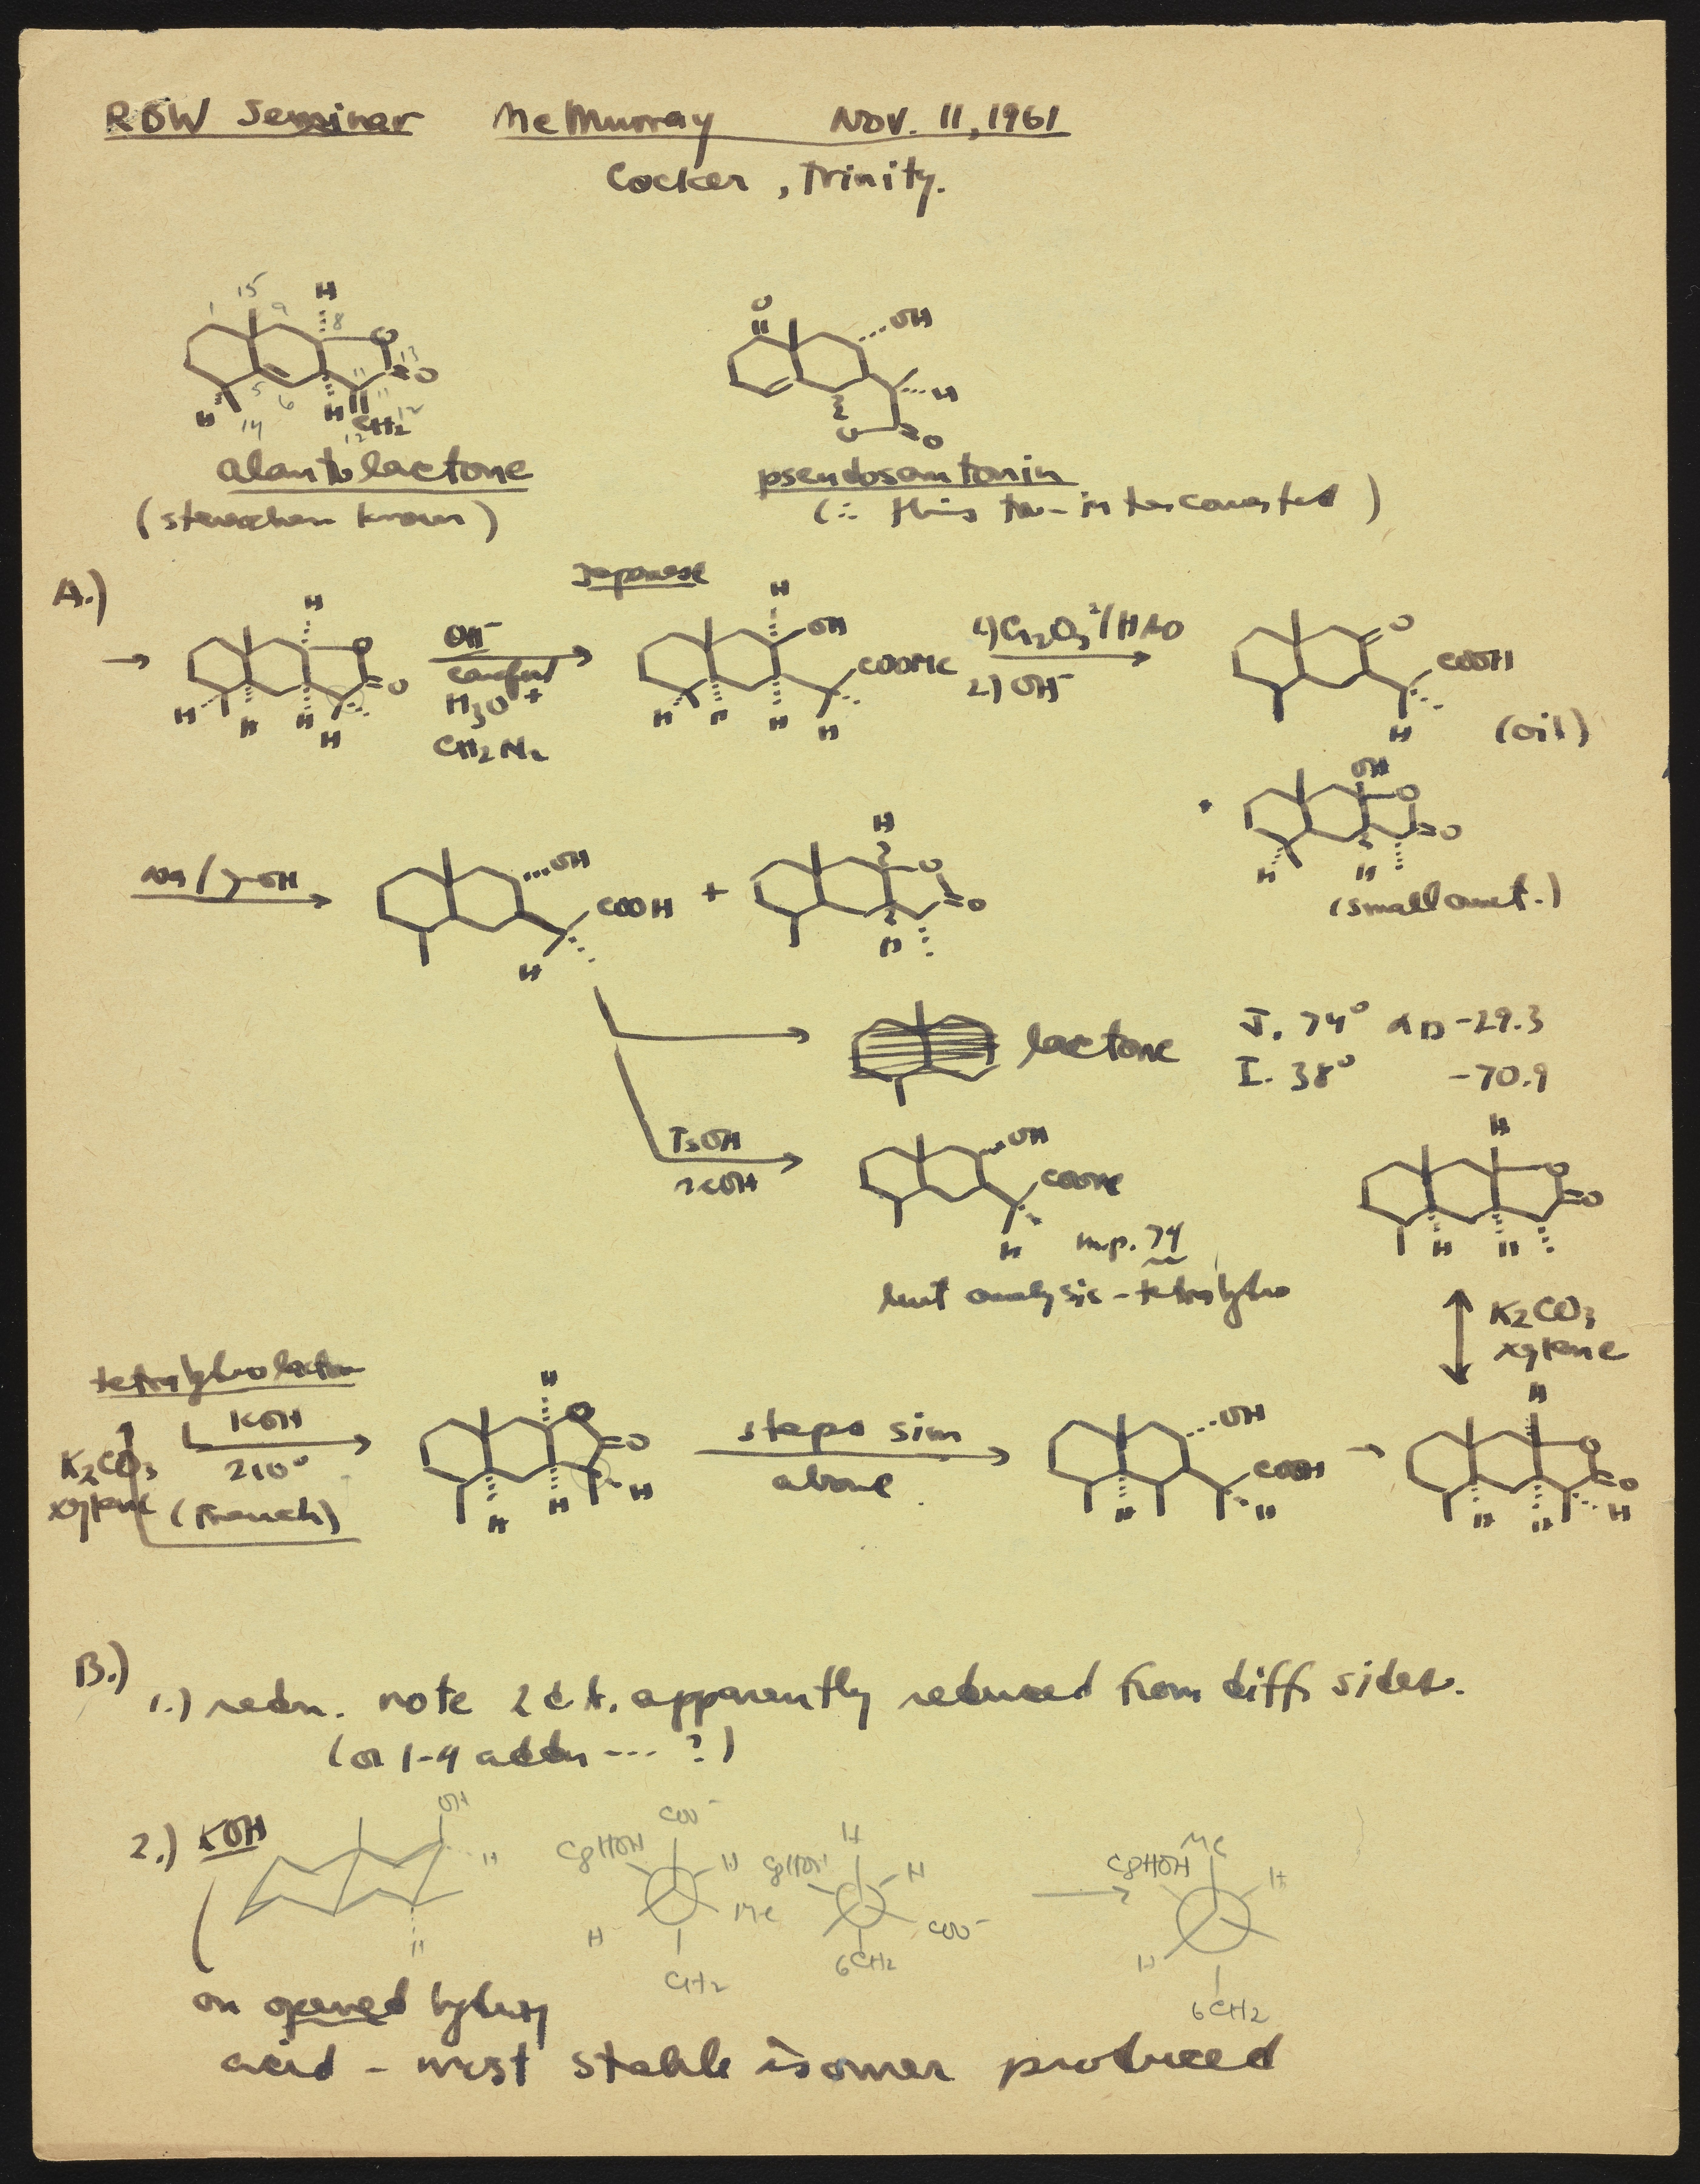 RBW Seminar McMurray Nov. 11, 1961
Cocker, Trinity.
1 15 9 H 8
O 13 O
H 14 5 6 H 11 CH2 12
O OH
H
O O
alantolactone
pseudosantonin
(stereochem known)
(∴ this to- interconverted)
A.)
Japanese
→ H O O H H H H
OH⁻
careful
H3O+
CH2N2
H OH COOMe H H H H
2) OH⁻
O COOH H (oil)
+ OH O O H H
(small amt.)
OH COOH H + H O O H
lactone J. 74° αD -29.3
I. 38° -70.9
TsOH
OH COOMe H
m.p. 74
but analysis - tetrahydro
H O O H H
K2CO3
xylene
KOH
210°
(French)
K2CO3
xylene
H O O H H H
steps sim
above
OH COOH H H → H O O H H H
B.) 1.) redn. note apparently reduced from diff sides.
(or 1-4 addn --- ?)
2.) KOH
OH H H
COO⁻ C8HOH H Me H CH2
H C8HOH H COO⁻ 6CH2
→ Me C8HOH H H 6CH2
on opened hydroxy
acid - most stable isomer produced